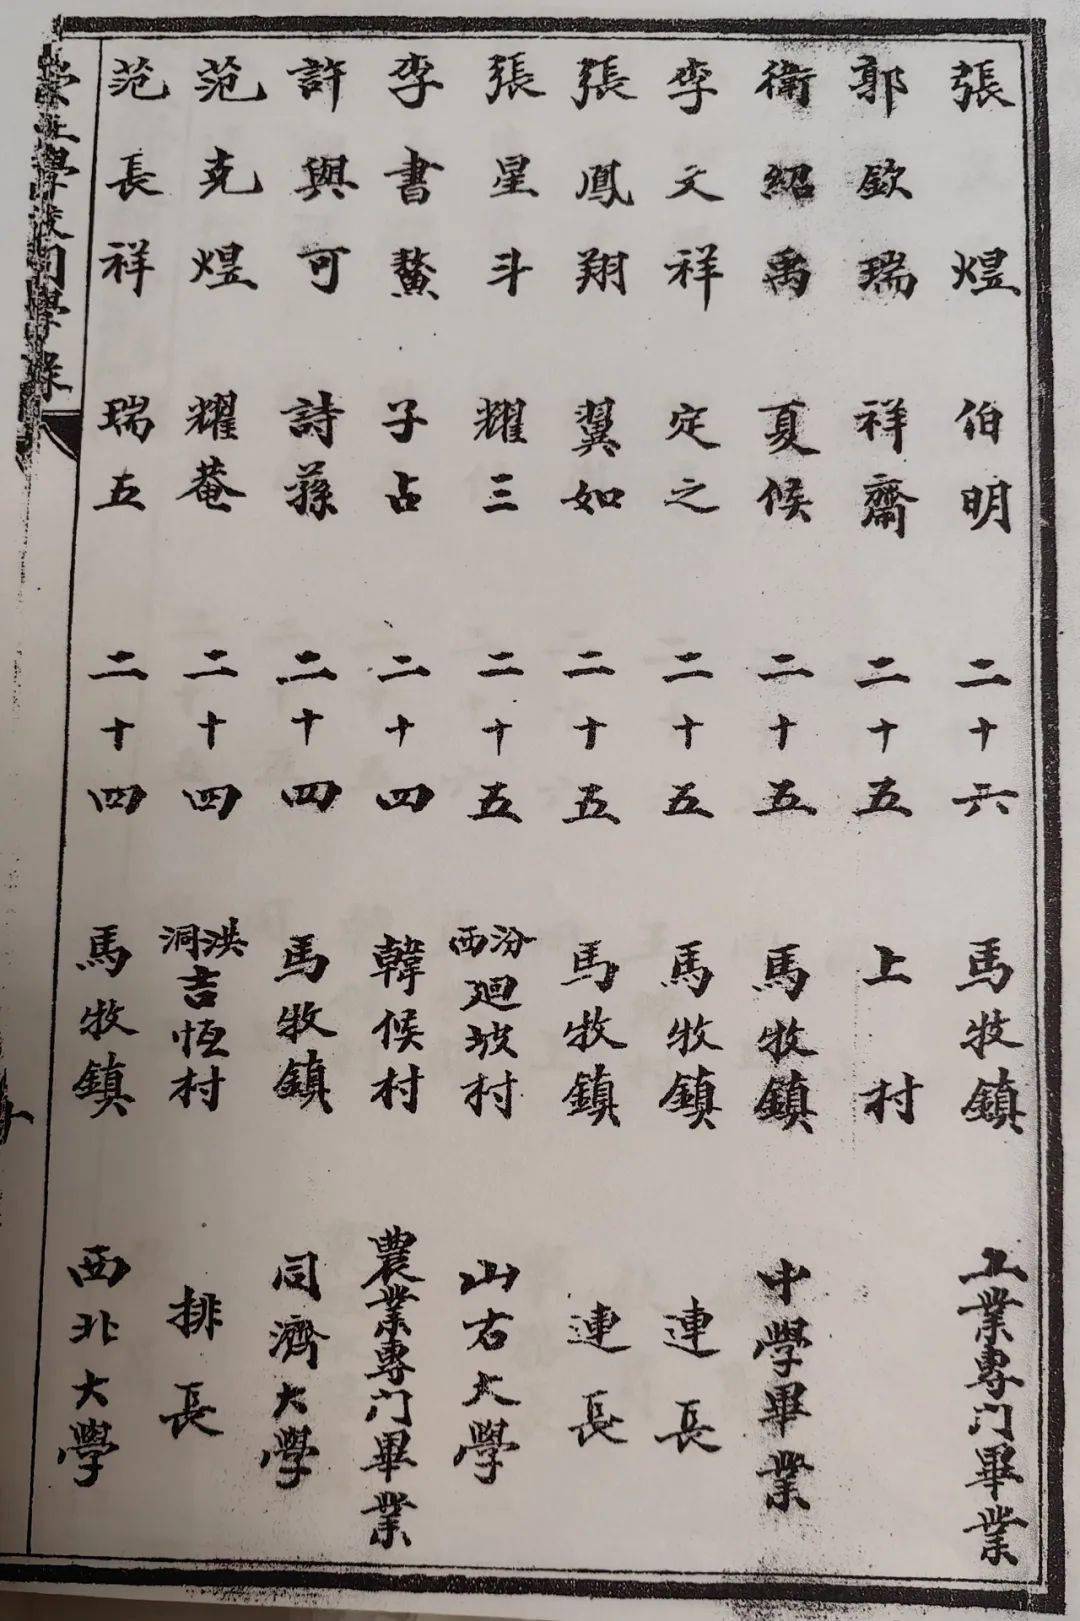 張煜 伯明 二十六 馬牧鎮 工業專門畢業
郭欽瑞 祥齋 二十五 上村
衛紹禹 夏候 二十五 馬牧鎮 中學畢業
李文祥 定之 二十五 馬牧鎮 連長
張鳳翔 翼如 二十五 馬牧鎮 連長
張星斗 耀三 二十五 汾西廻坡村 山右大學
李書鰲 子占 二十四 韓候村 農業專門畢業
許與可 詩蓀 二十四 馬牧鎮 同濟大學
范克煜 耀菴 二十四 洪洞吉恆村 排長
范長祥 瑞五 二十四 馬牧鎮 西北大學
學校同學錄